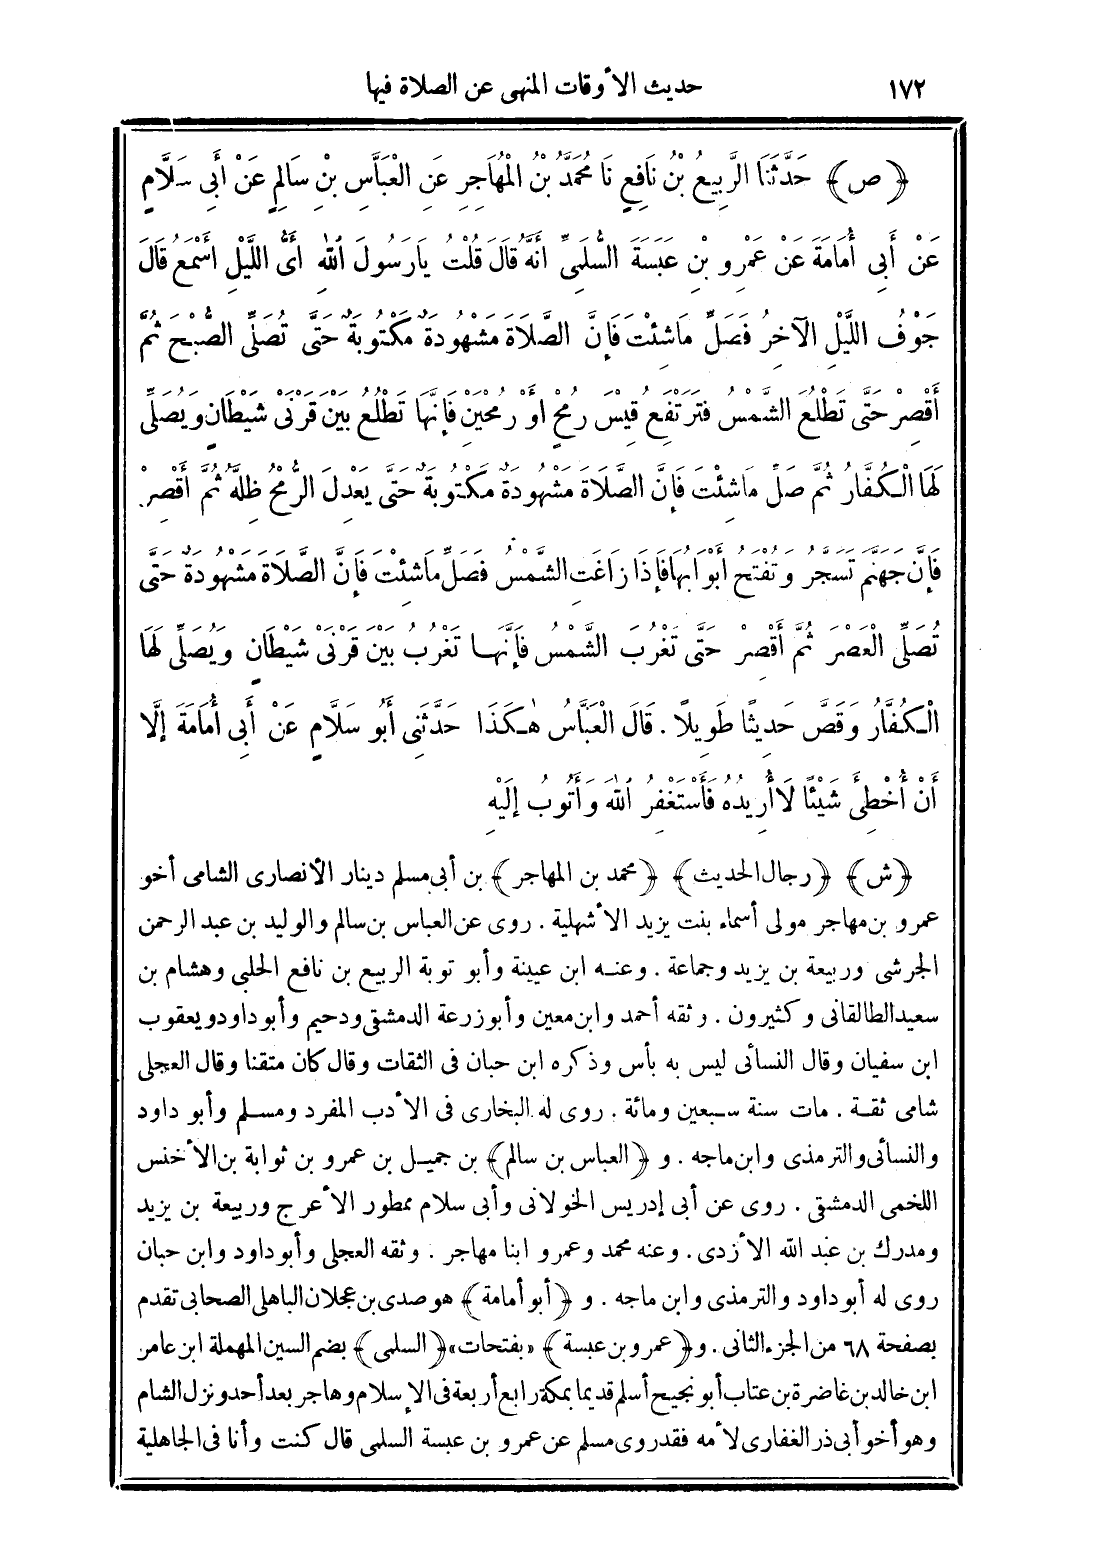 ١٧٢ حديث الأوقات المنهى عن الصلاة فيها
﴿ص﴾ حَدَّثَنَا الرَّبِيعُ بْنُ نَافِعٍ نَا مُحَمَّدُ بْنُ الْمُهَاجِرِ عَنِ الْعَبَّاسِ بْنِ سَالِمٍ عَنْ أَبِى سَلَّامٍ
عَنْ أَبِى أُمَامَةَ عَنْ عَمْرِو بْنِ عَبَسَةَ السُّلَمِىِّ أَنَّهُ قَالَ قُلْتُ يَارَسُولَ اللهِ أَىُّ اللَّيْلِ أَسْمَعُ قَالَ
جَوْفُ اللَّيْلِ الآخِرُ فَصَلِّ مَاشِئْتَ فَإِنَّ الصَّلَاةَ مَشْهُودَةٌ مَكْتُوبَةٌ حَتَّى تُصَلِّىَ الصُّبْحَ ثُمَّ
أَقْصِرْ حَتَّى تَطْلُعَ الشَّمْسُ فَتَرْتَفِعُ قِيْسَ رُمْحٍ أَوْ رُمْحَيْنِ فَإِنَّهَا تَطْلُعُ بَيْنَ قَرْنَىْ شَيْطَانٍ وَيُصَلِّى
لَهَا الْكُفَّارُ ثُمَّ صَلِّ مَاشِئْتَ فَإِنَّ الصَّلَاةَ مَشْهُودَةٌ مَكْتُوبَةٌ حَتَّى يَعْدِلَ الرُّمْحُ ظِلَّهُ ثُمَّ أَقْصِرْ
فَإِنَّ جَهَنَّمَ تُسَجَّرُ وَتُفْتَحُ أَبْوَابُهَا فَإِذَا زَاغَتِ الشَّمْسُ فَصَلِّ مَاشِئْتَ فَإِنَّ الصَّلَاةَ مَشْهُودَةٌ حَتَّى
تُصَلِّىَ الْعَصْرَ ثُمَّ أَقْصِرْ حَتَّى تَغْرُبَ الشَّمْسُ فَإِنَّهَا تَغْرُبُ بَيْنَ قَرْنَىْ شَيْطَانٍ وَيُصَلِّى لَهَا
الْكُفَّارُ وَقَصَّ حَدِيثًا طَوِيلًا . قَالَ الْعَبَّاسُ هٰكَذَا حَدَّثَنِى أَبُو سَلَّامٍ عَنْ أَبِى أُمَامَةَ إِلَّا
أَنْ أُخْطِئَ شَيْئًا لَاأُرِيدُهُ فَأَسْتَغْفِرُ اللهَ وَأَتُوبُ إِلَيْهِ
﴿ش﴾ ﴿رجال الحديث﴾ ﴿محمد بن المهاجر﴾ بن أبى مسلم دينار الأنصارى الشامى أخو
عمرو بن مهاجر مولى أسماء بنت يزيد الأشهلية . روى عن العباس بن سالم والوليد بن عبد الرحمن
الجرشى وربيعة بن يزيد وجماعة . وعنه ابن عيينة وأبو توبة الربيع بن نافع الحلبى وهشام بن
سعيد الطالقانى وكثيرون . وثقه أحمد وابن معين وأبو زرعة الدمشقى ودحيم وأبو داود ويعقوب
ابن سفيان وقال النسائى ليس به بأس وذكره ابن حبان فى الثقات وقال كان متقنا وقال العجلى
شامى ثقة . مات سنة سبعين ومائة . روى له البخارى فى الأدب المفرد ومسلم وأبو داود
والنسائى والترمذى وابن ماجه . و ﴿العباس بن سالم﴾ بن جميل بن عمرو بن ثوابة بن الأخنس
اللخمى الدمشقى . روى عن أبى إدريس الخولانى وأبى سلام ممطور الأعرج وربيعة بن يزيد
ومدرك بن عبد الله الأزدى . وعنه محمد وعمرو ابنا مهاجر . وثقه العجلى وأبو داود وابن حبان
روى له أبو داود والترمذى وابن ماجه . و ﴿أبو أمامة﴾ هو صدى بن عجلان الباهلى الصحابى تقدم
بصفحة ٦٨ من الجزء الثانى . و﴿عمرو بن عبسة﴾ «بفتحات» ﴿السلمى﴾ بضم السين المهملة ابن عامر
ابن خالد بن غاضرة بن عتاب أبو نجيح أسلم قديما بمكة رابع أربعة فى الإسلام وهاجر بعد أحد ونزل الشام
وهو أخو أبى ذر الغفارى لأمه فقد روى مسلم عن عمرو بن عبسة السلمى قال كنت وأنا فى الجاهلية